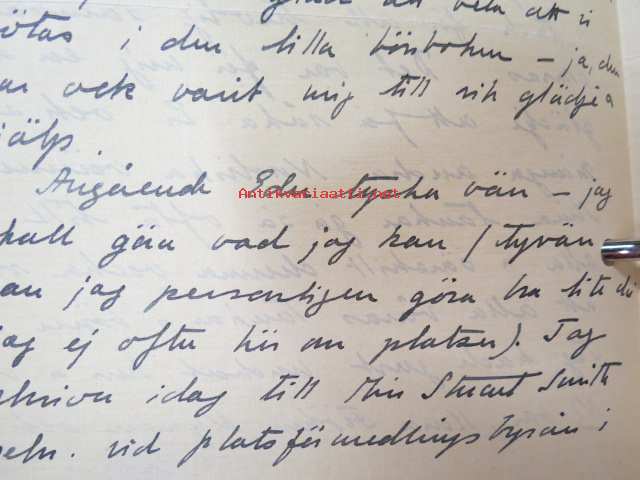 glad att veta att vi
ötas i den lilla bönboken – ja, den
ar ock varit mig till rik glädje o
jälp.
Angående Eder tyska vän – jag
kall göra vad jag kan (tyvärr
an jag personligen göra bra litet då
jag ej ofta hör om platser). Jag
skriver idag till Miss Stuart Smith
vid platsförmedlingsbyrån i
Antikvariaatti.net